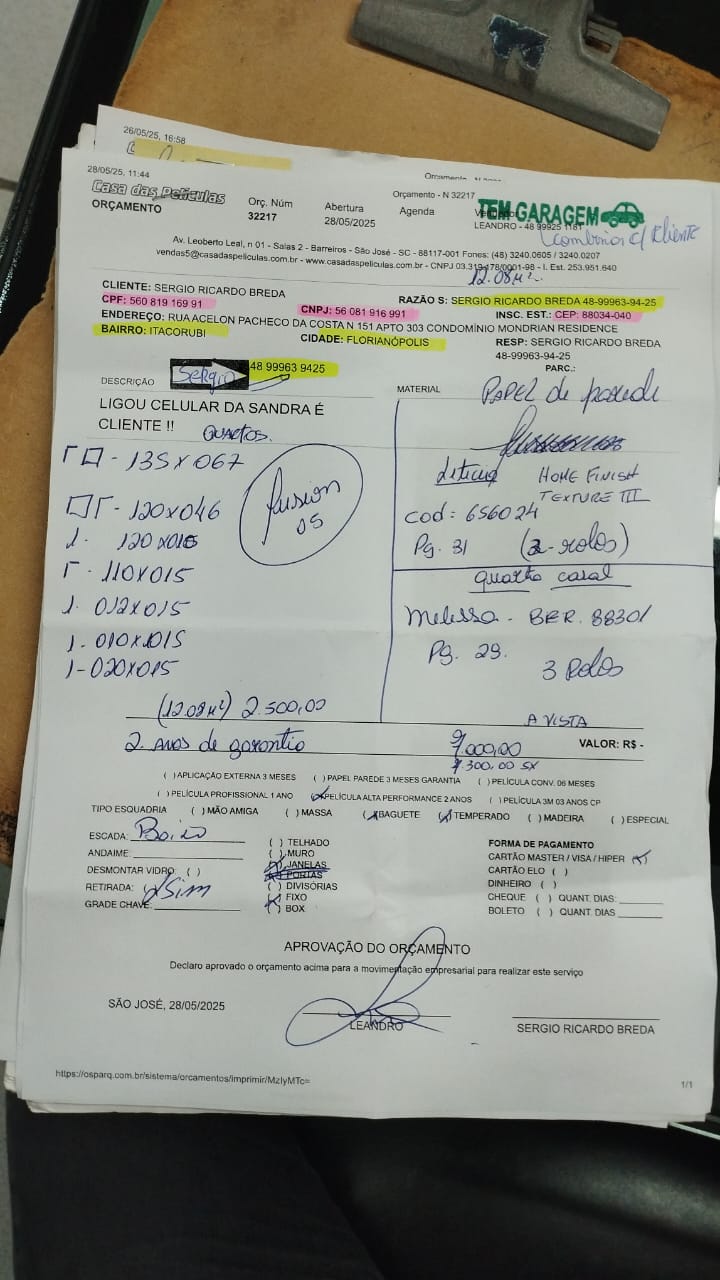 26/05/25, 16:58
28/05/25, 11:44
Orçamento - N 32217
Casa das Películas
ORÇAMENTO
Orç. Núm
32217
Abertura
28/05/2025
Agenda
TEM GARAGEM
LEANDRO - 48 99925 1181
Combinar c/ cliente
Av. Leoberto Leal, n 01 - Salas 2 - Barreiros - São José - SC - 88117-001 Fones: (48) 3240.0605 / 3240.0207
vendas5@casadaspeliculas.com.br - www.casadaspeliculas.com.br - CNPJ 03.319.478/0001-98 - I. Est. 253.951.640
12.08M²
CLIENTE: SERGIO RICARDO BREDA
RAZÃO S: SERGIO RICARDO BREDA 48-99963-94-25
CPF: 560 819 169 91
CNPJ: 56 081 916 991
INSC. EST.: CEP: 88034-040
ENDEREÇO: RUA ACELON PACHECO DA COSTA N 151 APTO 303 CONDOMÍNIO MONDRIAN RESIDENCE
BAIRRO: ITACORUBI
CIDADE: FLORIANÓPOLIS
RESP: SERGIO RICARDO BREDA
48-99963-94-25
PARC.:
Sergio
48 99963 9425
DESCRIÇÃO
MATERIAL
PAPEL de parede
LIGOU CELULAR DA SANDRA É
CLIENTE !!
QUARTOS.
135 X 067
120 X 046
1. 120 X 015
110 X 015
1. 012 X 015
1 - 010 X 015
1 - 020 X 015
fusion
05
Leticia HOME FINISH
TEXTURE III
cod: 656024
Pg. 31 (2-rolos)
quarto casal
Melessa - BER. 88301
Pg. 29.
3 Rolos
(12.08M²) 2.500,00
A VISTA
2. Anos de garantia
9.000,00
VALOR: R$ -
9.300,00 5X
( ) APLICAÇÃO EXTERNA 3 MESES ( ) PAPEL PAREDE 3 MESES GARANTIA ( ) PELÍCULA CONV. 06 MESES
( ) PELÍCULA PROFISSIONAL 1 ANO (X) PELÍCULA ALTA PERFORMANCE 2 ANOS ( ) PELÍCULA 3M 03 ANOS CP
TIPO ESQUADRIA ( ) MÃO AMIGA ( ) MASSA (X) BAGUETE (X) TEMPERADO ( ) MADEIRA ( ) ESPECIAL
ESCADA:
ANDAIME:
DESMONTAR VIDRO: ( )
RETIRADA: Sim
GRADE CHAVE:
( ) TELHADO
( ) MURO
(X) JANELAS
(X) PORTAS
( ) DIVISÓRIAS
(X) FIXO
( ) BOX
FORMA DE PAGAMENTO
CARTÃO MASTER / VISA / HIPER (X)
CARTÃO ELO ( )
DINHEIRO ( )
CHEQUE ( ) QUANT. DIAS:
BOLETO ( ) QUANT. DIAS
APROVAÇÃO DO ORÇAMENTO
Declaro aprovado o orçamento acima para a movimentação empresarial para realizar este serviço
SÃO JOSÉ, 28/05/2025
LEANDRO
SERGIO RICARDO BREDA
https://osparq.com.br/sistema/orcamentos/imprimir/MzIyMTc=
1/1